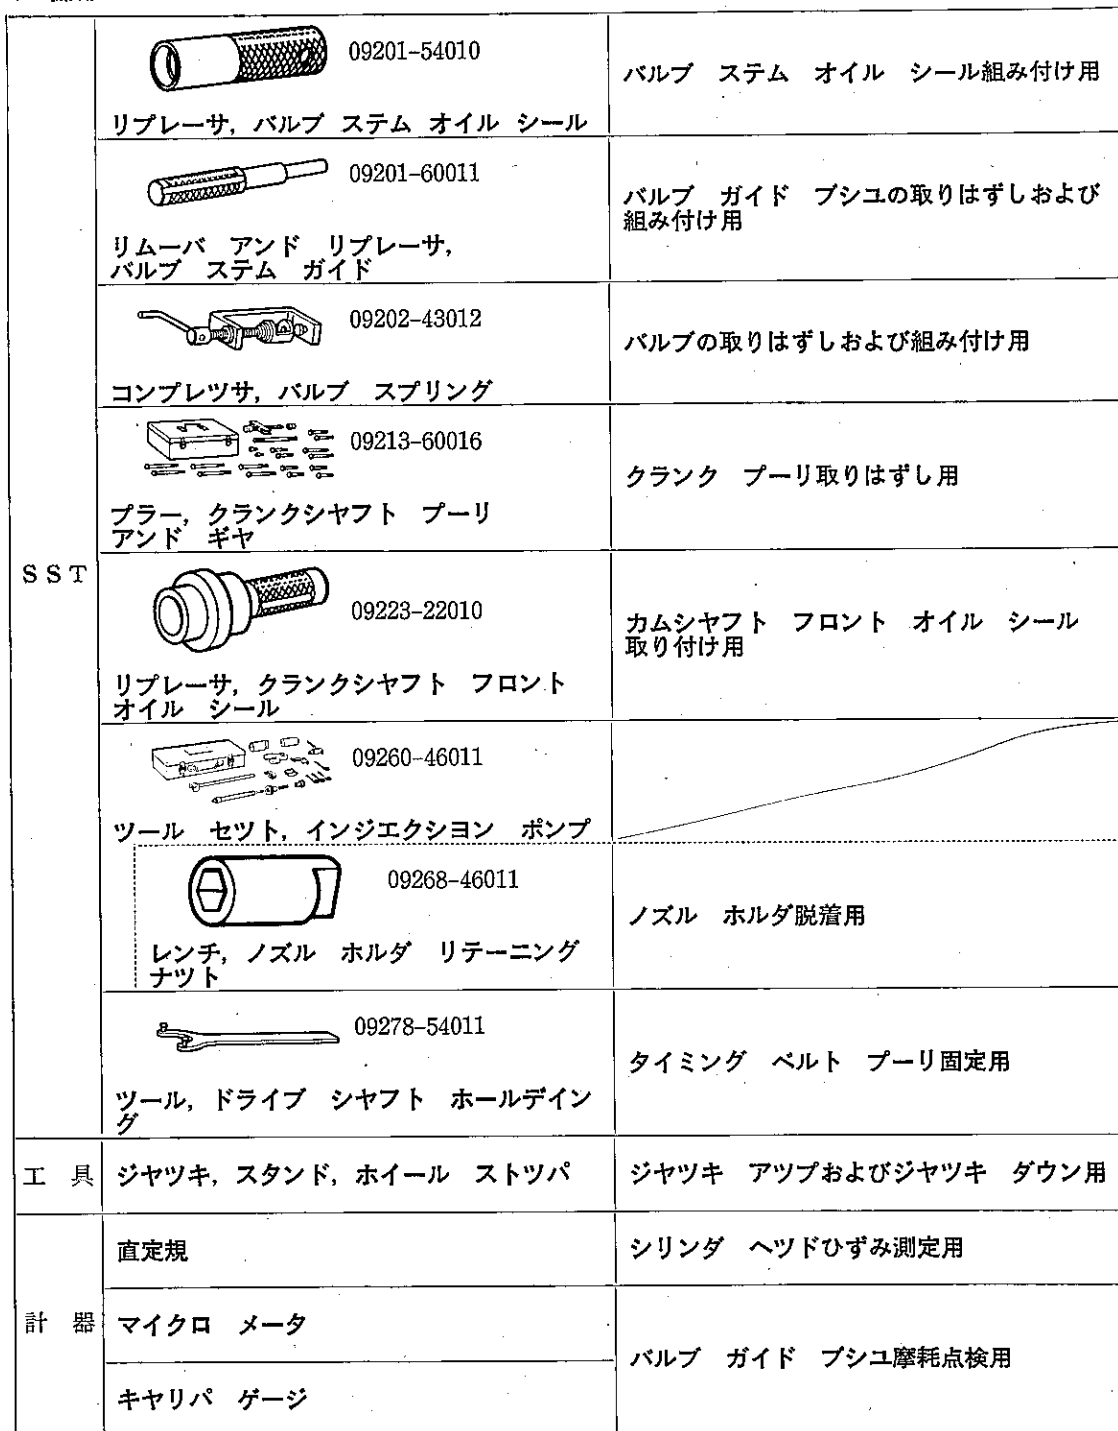 09201-54010
リプレーサ, バルブ ステム オイル シール
バルブ ステム オイル シール組み付け用
09201-60011
リムーバ アンド リプレーサ,
バルブ ステム ガイド
バルブ ガイド ブシユの取りはずしおよび
組み付け用
09202-43012
コンプレツサ, バルブ スプリング
バルブの取りはずしおよび組み付け用
09213-60016
プラー, クランクシヤフト プーリ
アンド ギヤ
クランク プーリ取りはずし用
SST
09223-22010
リプレーサ, クランクシヤフト フロント
オイル シール
カムシヤフト フロント オイル シール
取り付け用
09260-46011
ツール セツト, インジエクシヨン ポンプ
09268-46011
レンチ, ノズル ホルダ リテーニング
ナツト
ノズル ホルダ脱着用
09278-54011
ツール, ドライブ シヤフト ホールデイン
グ
タイミング ベルト プーリ固定用
工 具
ジヤツキ, スタンド, ホイール ストツパ
ジヤツキ アツプおよびジヤツキ ダウン用
計 器
直定規
シリンダ ヘツドひずみ測定用
マイクロ メータ
キヤリパ ゲージ
バルブ ガイド ブシユ摩耗点検用